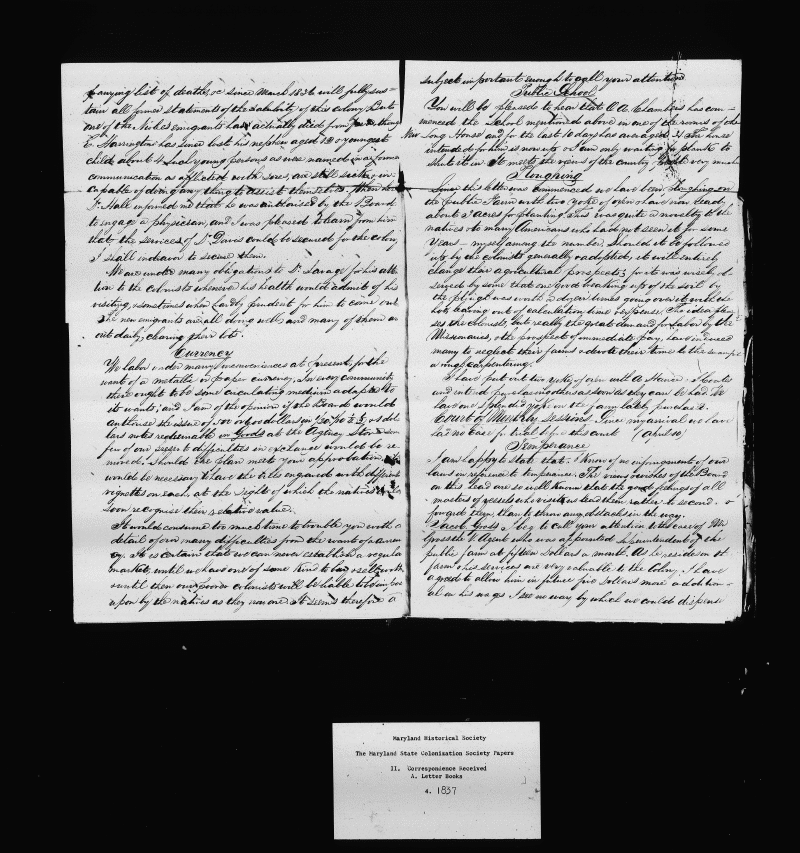 panying list of deaths &c since March 1836 will fully sus-
tain all former statements of the salubrity of this colony. But
one of the Niles emigrants has actually died from
C. Harrington has since lost his nephew aged 12 & youngest
child about 4 Such young persons as was named in a former
communication as afflicted with sores, are still sickly & in-
capable of doing any thing to assist themselves. When
J. Hall informed me that he was authorised by the Board
to engage a physician, and I was pleased to learn from him
that the services of Dr Davis could be secured for the colony
I shall endeavor to secure them.
We are under many obligations to Dr Savage for his atten-
tion to the colonists whenever his health would admit of his
visiting, & sometimes when hardly prudent for him to come out
The new emigrants are all doing well, and many of them are
out daily, clearing their lots.
Currency
We labor under many inconveniences at present, for the
want of a metallic or paper currency. In every community
there ought to be some circulating medium adapted to
its wants; and I am of the opinion if the Board would
authorise the issue of 500 or 600 dollars in
lars notes redeemable in Goods at the Agency Store some
few of our present difficulties in exchange would be re-
moved. Should the plan meet your approbation, it
would be necessary to have the bills engraved with different
vignettes on each, at the sight of which the natives
soon recognise their relative value.
It would consume too much time to trouble you with a
detail of our many difficulties from the want of a curren-
cy. It is certain that we can never establish a regular
market, until we have one of some kind
& until then our poorer colonists will be liable to be imposed
upon by the natives as they now are. It seems therefore a
subject important enough to call your attention
Public School
You will be pleased to hear that O. A. Chambers has com-
menced the School mentioned above in one of the rooms of the
New Long House and for the last 10 days has averaged 21. The house
intended for him is now up & am only waiting for planks to
shut it in. It meets the views of the country people very much
Ploughing
Since this letter was commenced we have been ploughing on
the Public Farm with two yoke of oxen & have now ready
about 3 acres for planting. This was quite a novelty to the
natives & to many Americans who had not seen it for some
Years - myself among the number. Should it be followed
up by the colonists generally & adopted, it will entirely
change their agricultural prospects; for it was wisely ob-
served by some that one good breaking up of the soil by
the plough was worth 2 or 3 times going over it with the
hoe, leaving out of calculation, time & expense. The idea plea-
ses the colonists, but really the great demand for labor by the
Missionaries, & the prospect of immediate pay, have induced
many to neglect their farms & devote their time to the
& rough carpentering.
I have put out two yoke of oxen with A. Hance
and intend placing others as soon as they can be had. We
have one splendid yoke on the farm lately purchased.
Court of Monthly Sessions. Since my arrival we have
had no case for trial before this court (April 10)
Temperance
I am happy to state that I know of no infringements of our
laws in reference to temperance. The views & wishes of the Board
on this head are so well known that the good feelings of all
masters of vessels who visit us lead them rather to second &
forward them, than to throw any obstacles in the way.
Jacob Gross I beg to call your attention to the case of Mr
Gross the V. Agent who was appointed superintendent of the
public farm at fifteen dollars a month. As he resides on the
farm & his services are very valuable to the Colony, I have
agreed to allow him in future five dollars more addition-
al on his wages. I see no way by which we could dispense
Maryland Historical Society
The Maryland State Colonization Society Papers
II. Correspondence Received
A. Letter Books
4. 1837